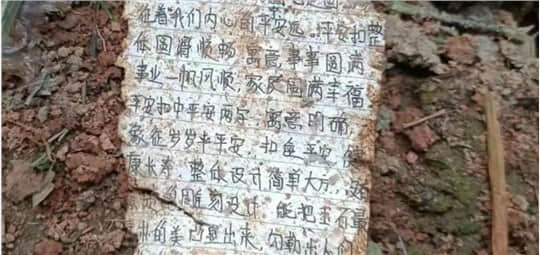 征着我们内心的平安远。平安扣整
体圆滑顺畅,寓意事事圆满
事业一帆风顺,家庭圆满幸福
平安扣中平安两字,寓意明确,
象征岁岁平平安,扣住平安,健
康长寿。整体设计简单大方,
雕刻设计,能把玉石最
的美凸显出来,勾勒出人们